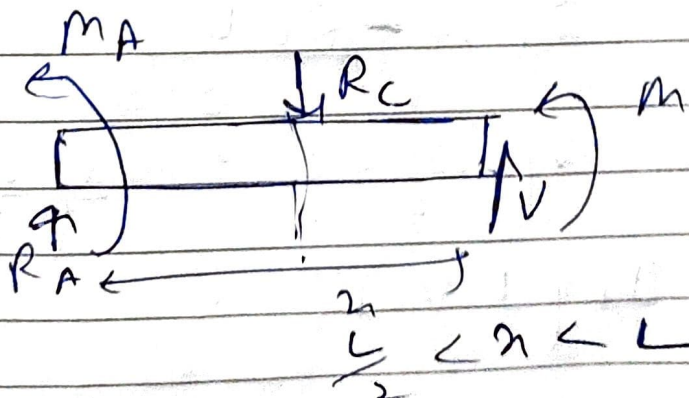 M_A
R_C
M
V
R_A
x
L/2 < x < L